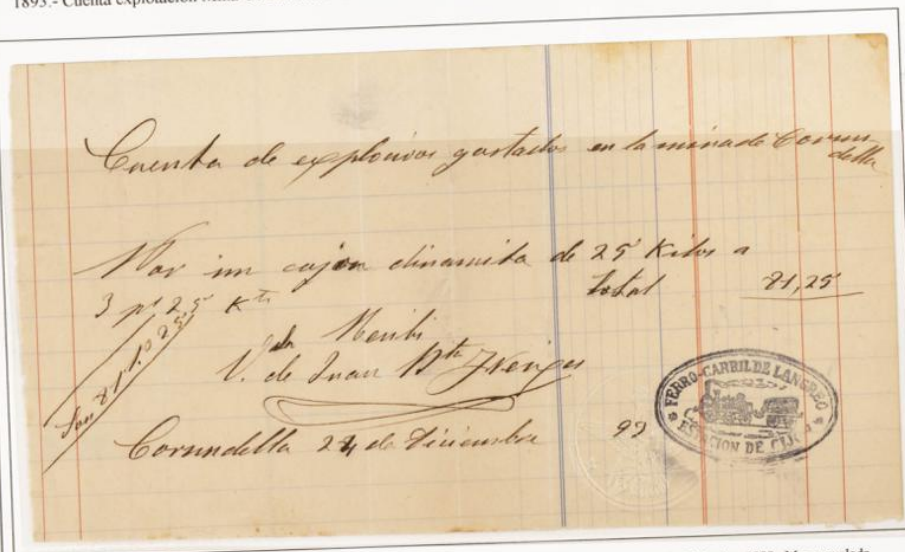 1893.- Cuenta explotación
Cuenta de explosivos gastados en la mina de Cornu
della
Por un cajon dinamita de 25 Kilos a
3 pts 25 Kto total 81,25
Son 81 p. 25
Recibi
V.da de Juan Bta
Cornudella 24 de Diciembre 99
FERRO-CARRIL DE LANGREO
ESTACION DE GIJON